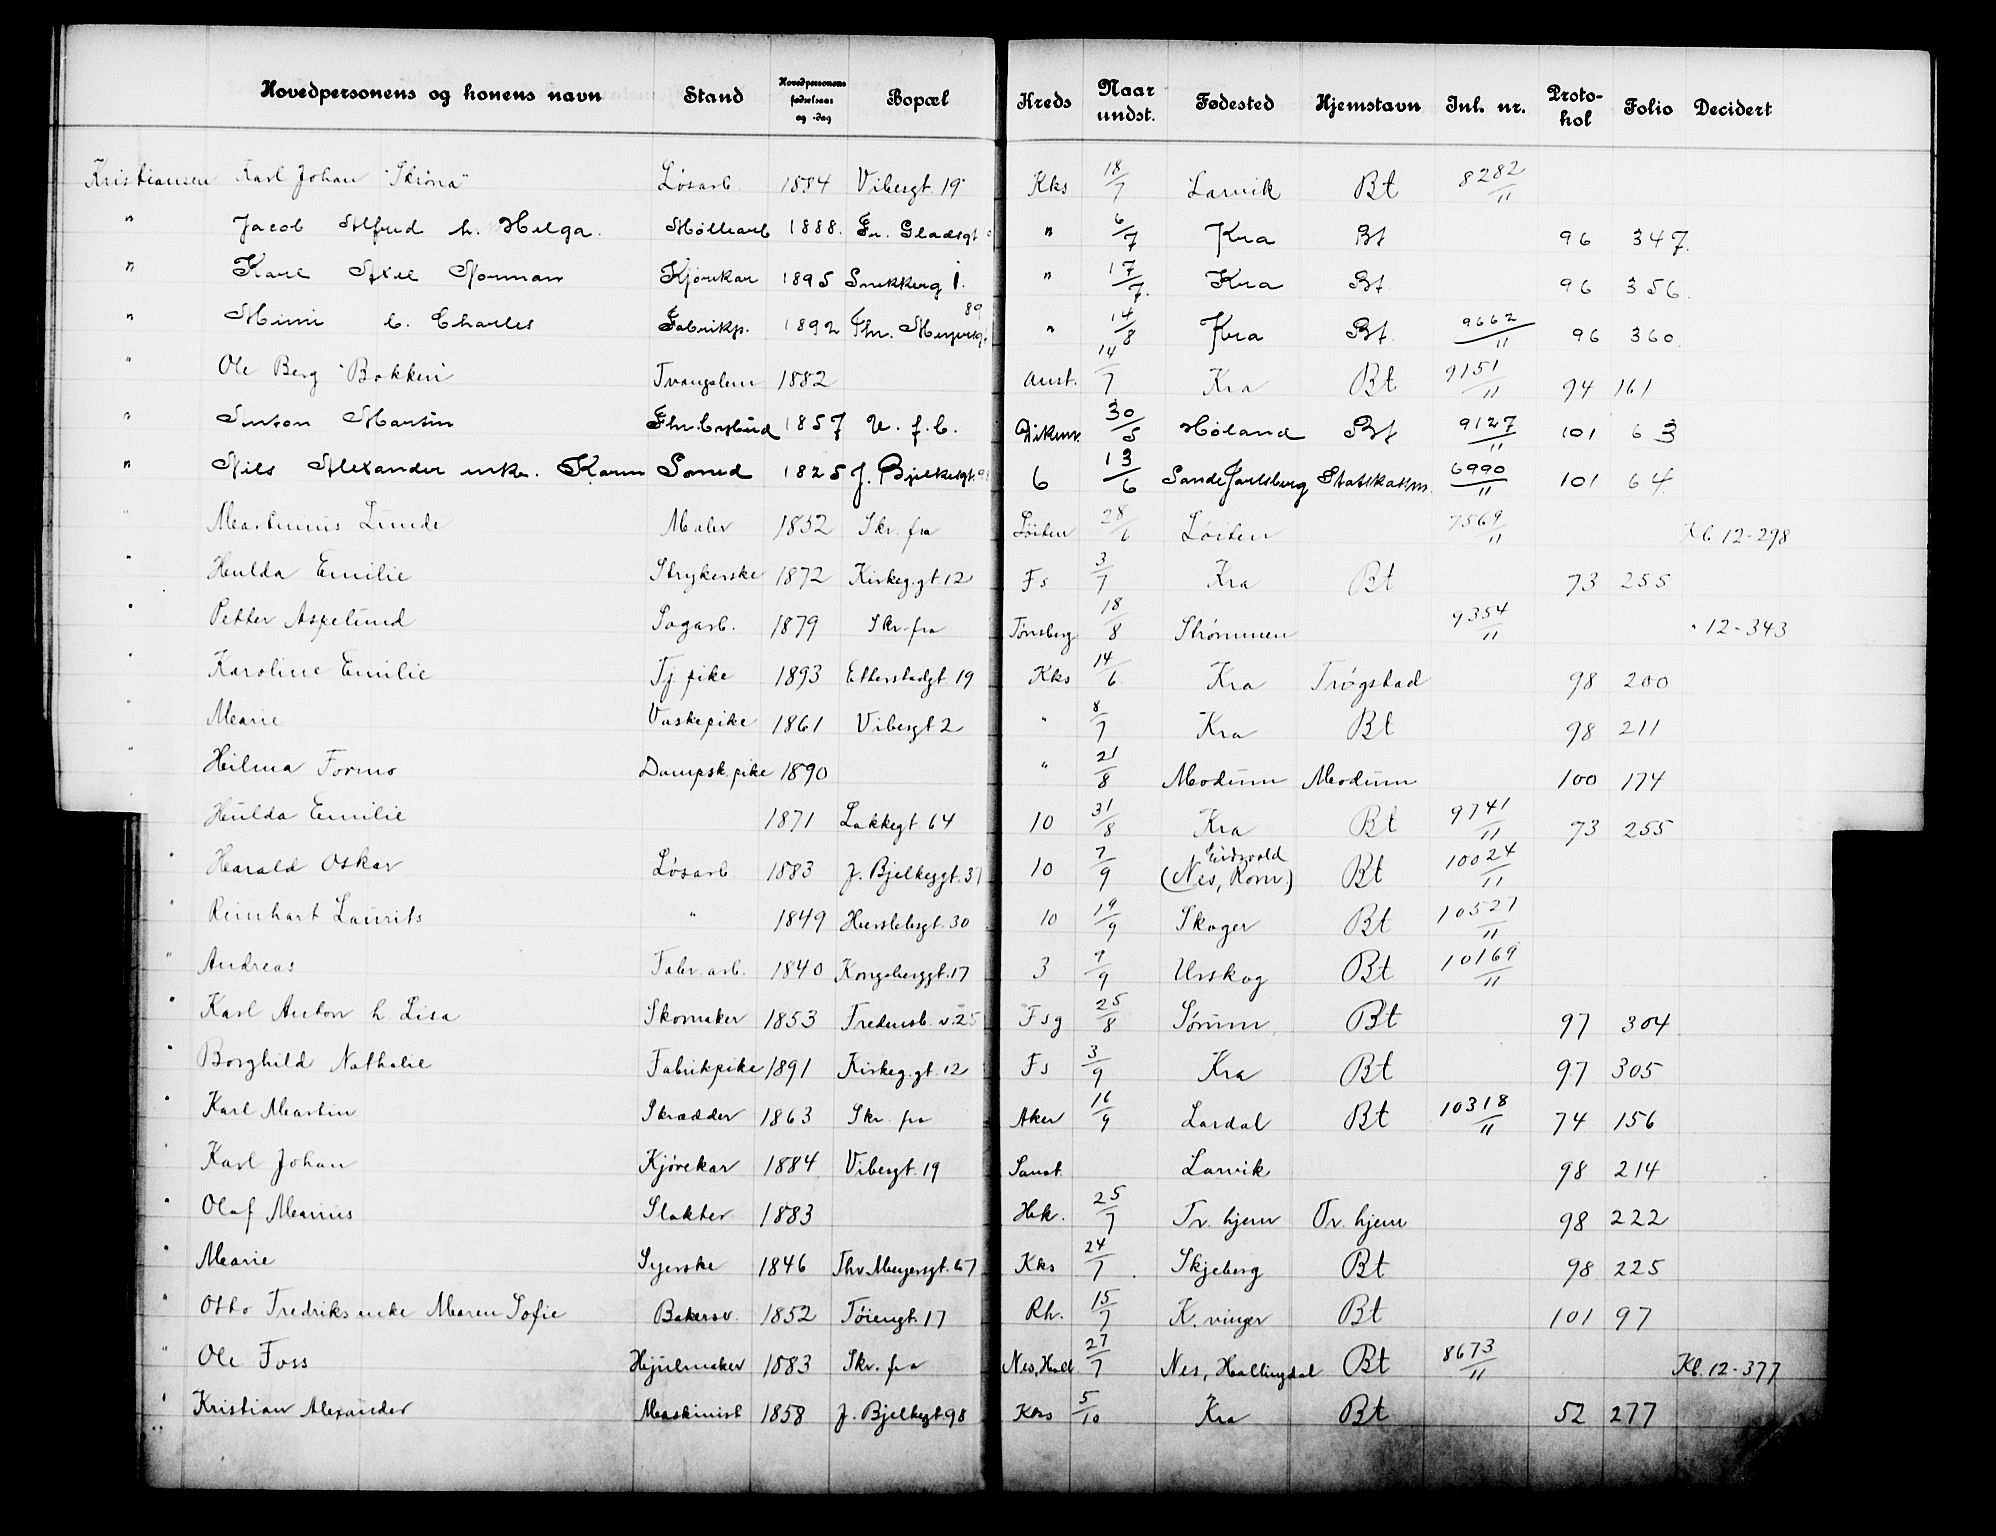 Hovedpersonens og konens navn Stand Hovedpersonens fødselsaar og -dag Bopæl Kreds Naar undst. Fødested Hjemstavn Inl. nr. Protokol Folio Decidert
Kristiansen Karl Johan "Skrøna" Løsarb. 1884 Vibesgt 19 Kks 18/7 Larvik Bt 8282/11
" Jacob Alfred h. Helga. Møllearb 1888. Fr. Gladsgt " 6/7 Kra Bt 96 347.
" Karl Axel Norman Kjørekar 1895 Snekkerg 1. " 17/7. Kra Bt. 96 356.
" Mimi C. Charles Fabrikp. 1892 Thv. Meyersgt. 89 " 14/8 Kra Bt. 9662/11 96 360.
" Ole Berg "Bakken" Tvangslem 1882 Anst. 14/7 Kra Bt 9151/11 94 161
" Anton Martin 1857 U. f. b. Dikem. 30/5 Høland Bt 9127/11 101 63
" Nils Alexander enke. Karen Smed 1825 J. Bjelkesgt. 6 13/6 Sande Jarlsberg Statskassen. 6990/11 101 64.
" Martinius Lunde Maler 1852 Skr. fra Løiten 28/6 Løiten 7569/11 Kb 12-298
" Hulda Emilie Strykerske 1872 Kirkeg.gt. 12 Fs 3/7 Kra Bt 73 255
" Petter Aspelund Sagarb. 1879 Skr. fra Tønsberg 18/8 Strømmen 9354/11 " 12-343
" Karoline Emilie Tj pike 1893 Etterstadgt. 19 Kks 14/6 Kra Trøgstad 98 200
" Marie Vaskepike 1861 Vibesgt 2 " 8/7 Kra Bt 98 211
" Hilma Formo Dampsk.pike 1890 " 21/8 Modum Modum 100 174
" Hulda Emilie 1871 Lakkegt 64 10 31/8 Kra Bt 9741/11 73 255
" Harald Oskar Løsarb. 1883 J. Bjelkesgt. 37 10 7/9 Eidsvold (Nes, Rom.) Bt 10024/11
" Reinhart Laurits " 1849 Herslebsgt. 30 10 19/9 Skoger Bt 10527/11
" Andreas Fabr. arb. 1840 Kongsberggt. 17 3 9/9 Urskog Bt 10169/11
" Karl Anton h Lisa Skomaker 1853 Fredensb. v. 25 Fsg 25/8 Sørum Bt 97 304
" Borghild Nathalie Fabrikpike 1891 Kirkeg.gt. 12 Fs 3/9 Kra Bt 97 305
" Karl Martin Skrædder 1863 Skr. fra Aker 16/9 Lardal Bt 10318/11 74 156
" Karl Johan Kjørekar 1884 Vibesgt. 19 Sanst Larvik 98 214
" Olaf Marius Slakter 1883 Hek. 25/7 Tv. hjem Tv. hjem 98 222
" Marie Syerske 1846 Thv Meyersgt. 67 Kks 24/7 Skjeberg Bt 98 225
" Otto Fredriks enke Maren Sofie Bakersv. 1852 Tøiengt. 17 Rh. 15/7 K. vinger Bt 101 97
" Ole Foss Hjulmaker 1883 Skr. fra Nes, Hall 27/7 Nes, Hallingdal Bt 8673/11 Kb. 12-377
" Kristian Alexander Maskinist 1858 J. Bjelkesgt 98 Kks 5/10 Kra Bt 52 277